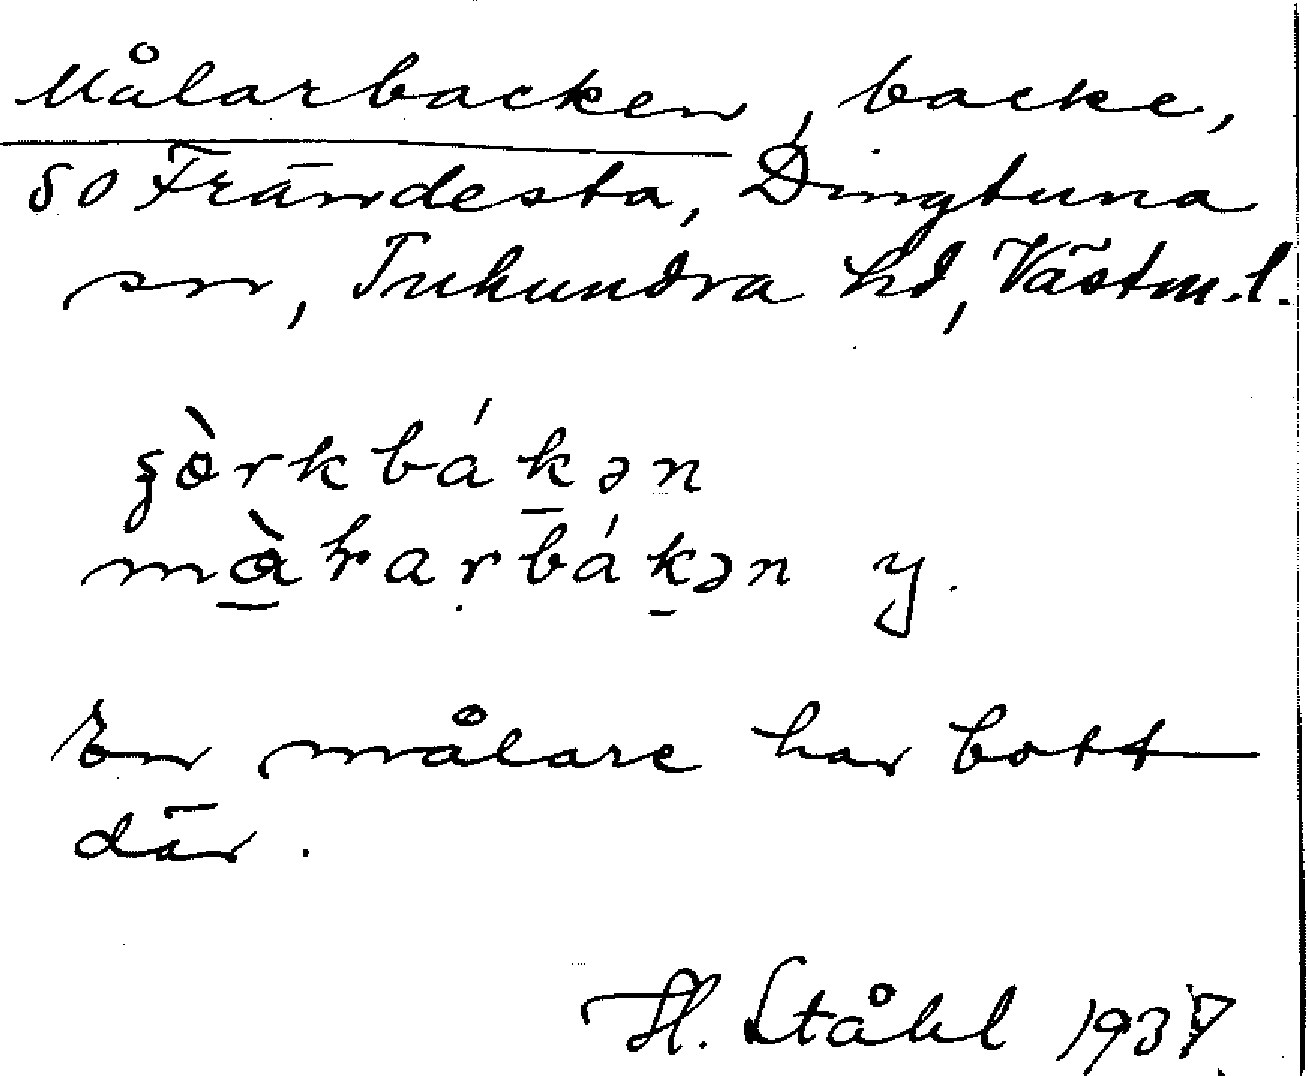 Målarbacken, backe,
SO Frändesta, Dingtuna
sn, Tuhundra hd, Västm.l.
bákən
y.
En målare har bott
där.
H. Ståhl